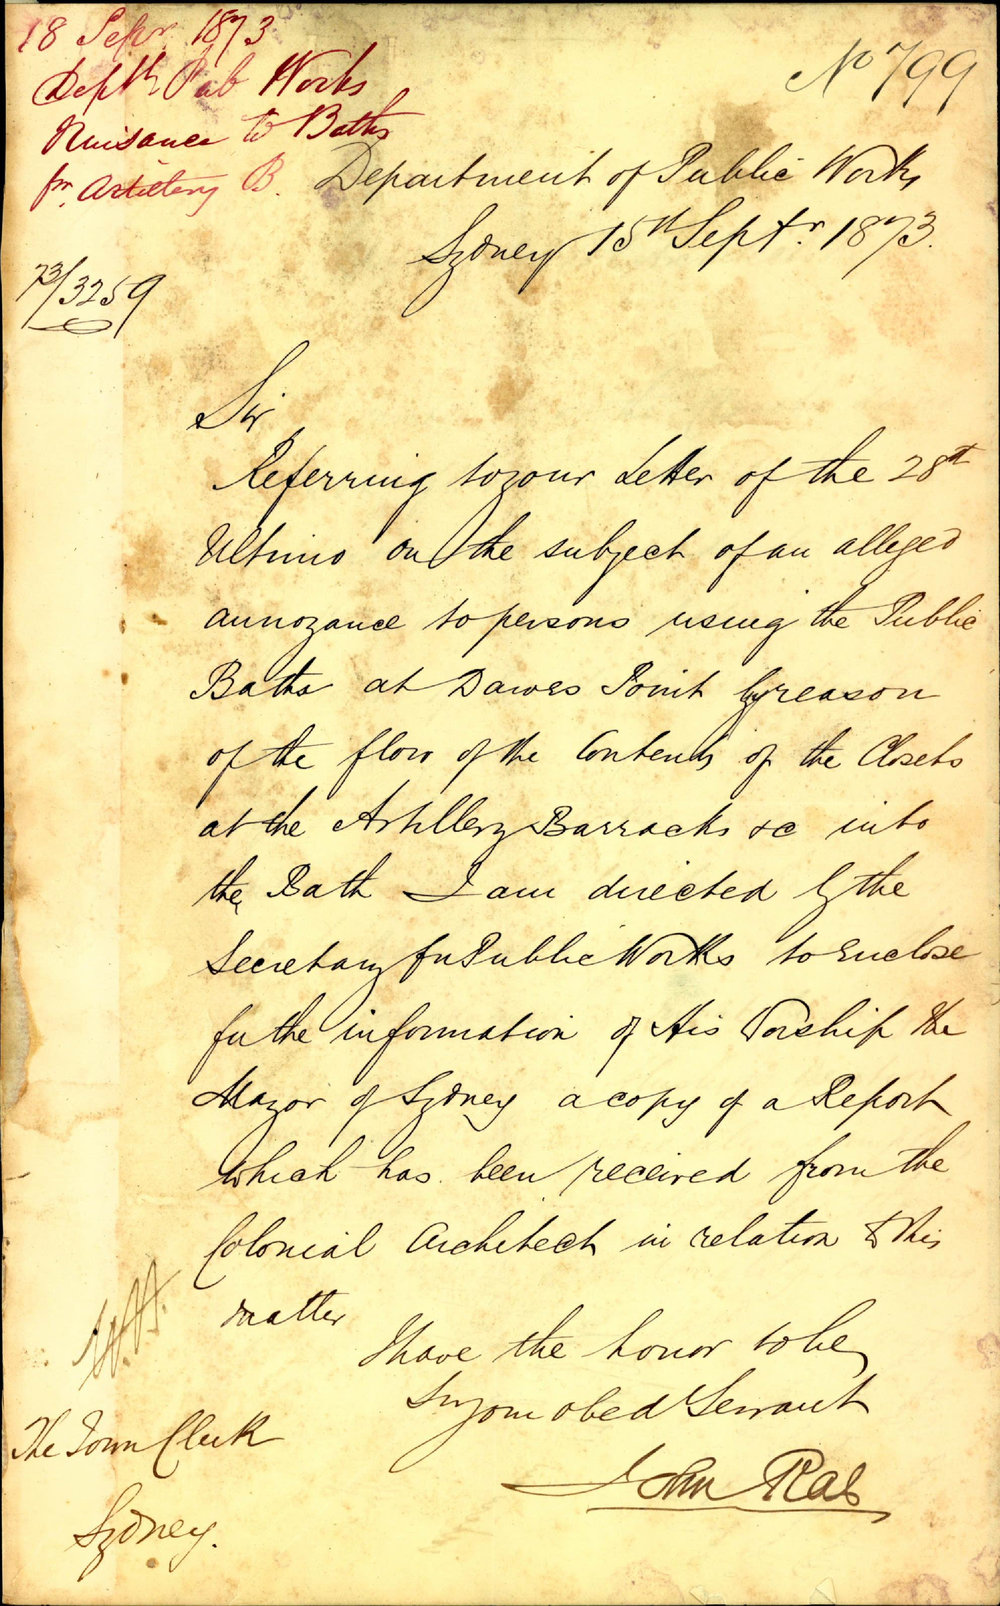 18 Sepr. 1873
Deptt Pub Works
Nuisance to Baths
fm. Artillery B.
No 799
Department of Public Works
Sydney 15th Septr. 1873.
73/3259
Sir
Referring to your Letter of the 28th
Ultimo on the subject of an alleged
annoyance to persons using the Public
Baths at Dawes Point by reason
of the flow of the Contents of the Closets
at the Artillery Barracks &c into
the Bath I am directed by the
Secretary for Public Works to Enclose
for the information of His Worship the
Mayor of Sydney a copy of a Report
which has been received from the
Colonial Architect in relation to this
matter
I have the honor to be
Sir your obed Servant
John Rae
The Town Clerk
Sydney.